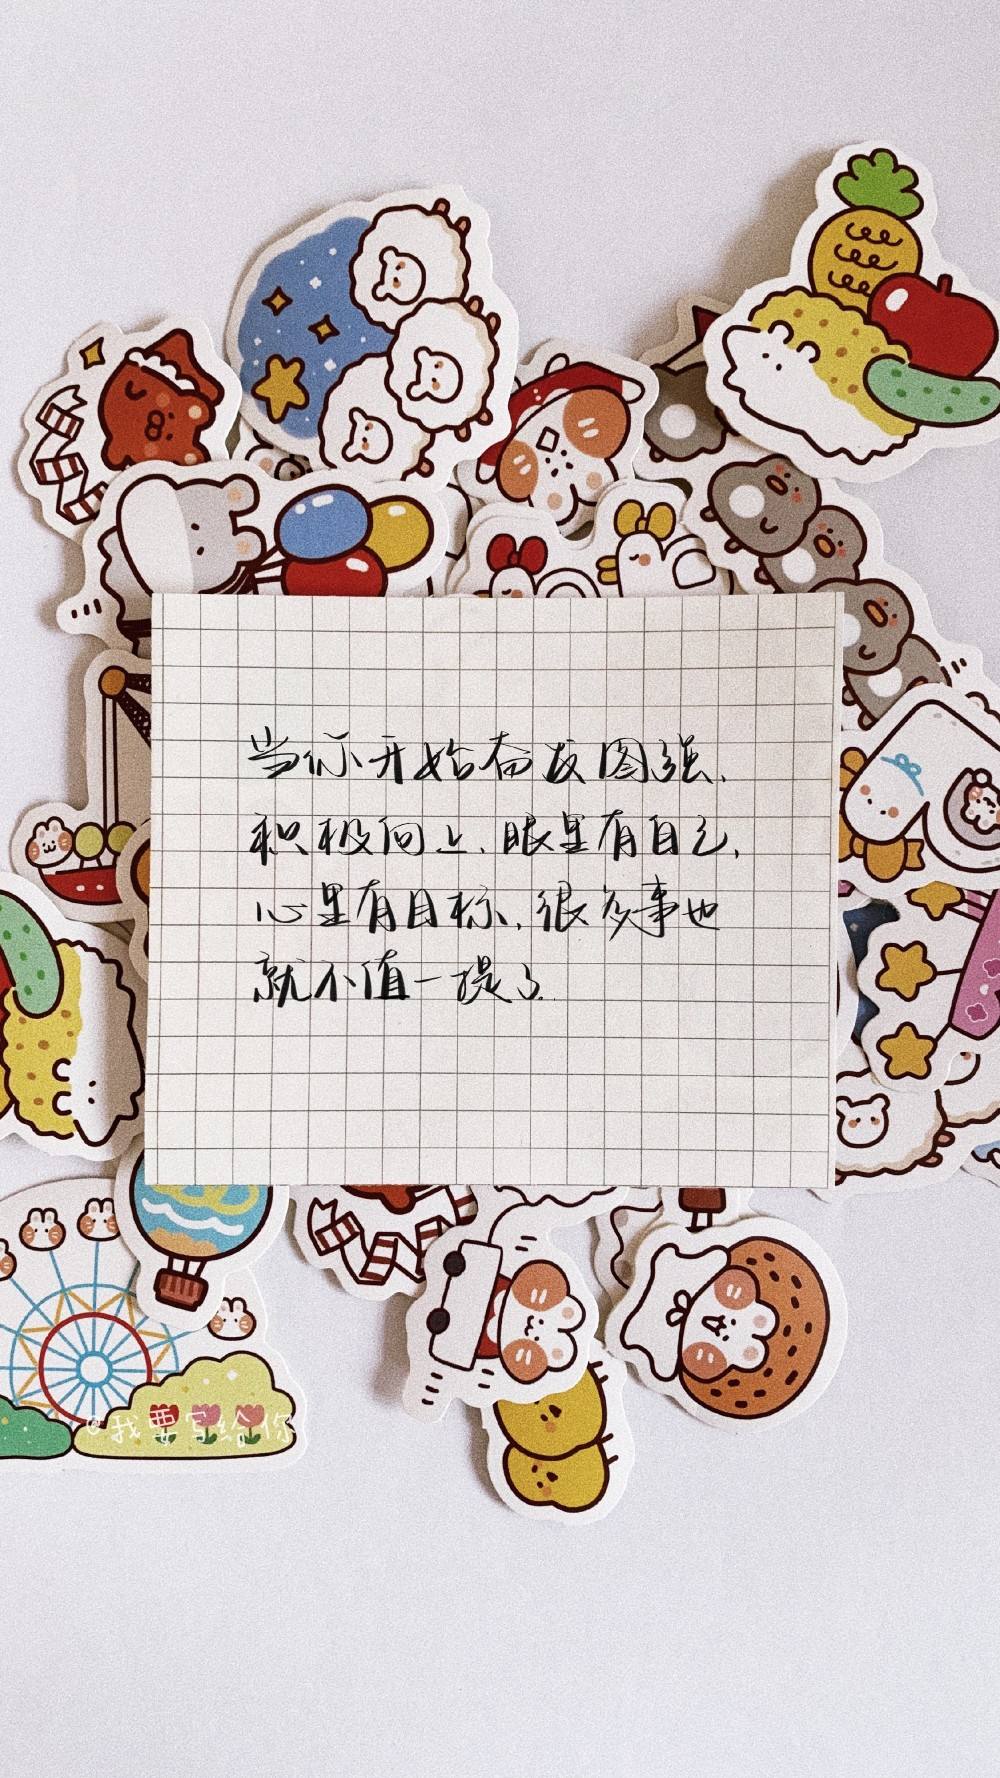 当你开始奋发图强、
积极向上、眼里有自己，
心里有目标，很多事也
就不值一提了.
@我要写给你